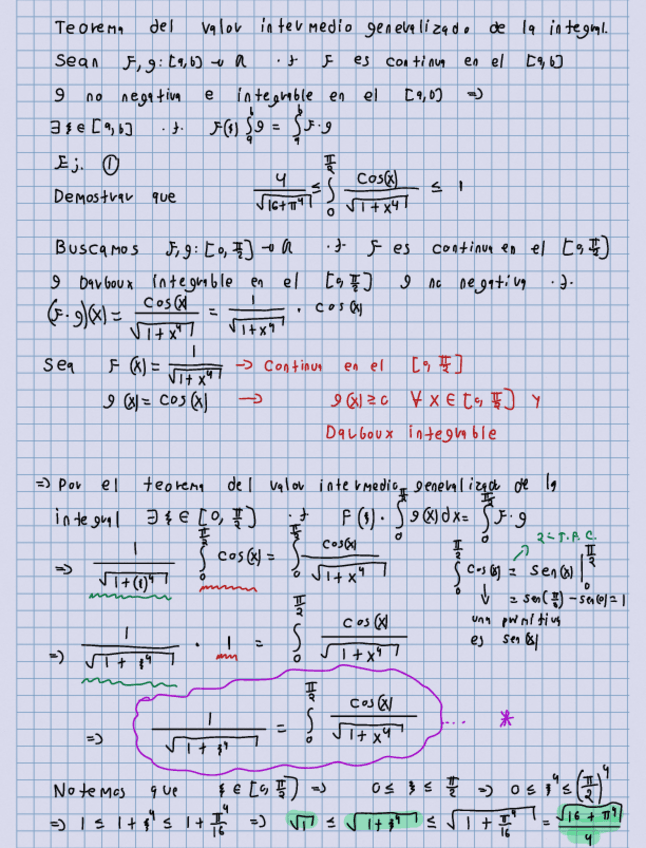 Teorema del valor intermedio generalizado de la integral.
Sean F, g: [a,b] → ℝ .t. F es continua en el [a,b]
g no negativa e integrable en el [a,b] =>
∃ξ∈[a,b] .t. F(ξ) ∫_a^b g = ∫_a^b F·g
Ej. ①
Demostrar que 4/√(16+π⁴) ≤ ∫_0^{π/2} cos(x)/√(1+x⁴) ≤ 1
Buscamos F, g: [0, π/2] → ℝ .t. F es continua en el [0, π/2]
g Darboux integrable en el [0, π/2] g no negativa .t.
(F·g)(x) = cos(x)/√(1+x⁴) = 1/√(1+x⁴) · cos(x)
Sea F(x) = 1/√(1+x⁴) → Continua en el [0, π/2]
g(x) = cos(x) → g(x) ≥ 0 ∀x∈[0, π/2] y
Darboux integrable
=> Por el teorema del valor intermedio generalizado de la
integral ∃ξ∈[0, π/2] .t. F(ξ)· ∫_0^{π/2} g(x)dx = ∫_0^{π/2} F·g
=> 1/√(1+(ξ)⁴) ∫_0^{π/2} cos(x) = ∫_0^{π/2} cos(x)/√(1+x⁴)
2° T.F.C.
∫_0^{π/2} cos(x) = sen(x)|_0^{π/2}
↓ = sen(π/2) - sen(0) = 1
una primitiva
es sen(x)
=> 1/√(1+ξ⁴) · 1 = ∫_0^{π/2} cos(x)/√(1+x⁴)
=> 1/√(1+ξ⁴) = ∫_0^{π/2} cos(x)/√(1+x⁴) .... *
Notemos que ξ∈[0, π/2] => 0 ≤ ξ ≤ π/2 => 0 ≤ ξ⁴ ≤ (π/2)⁴
=> 1 ≤ 1+ξ⁴ ≤ 1+π⁴/16 => √1 ≤ √(1+ξ⁴) ≤ √(1+π⁴/16) = √(16+π⁴)/4